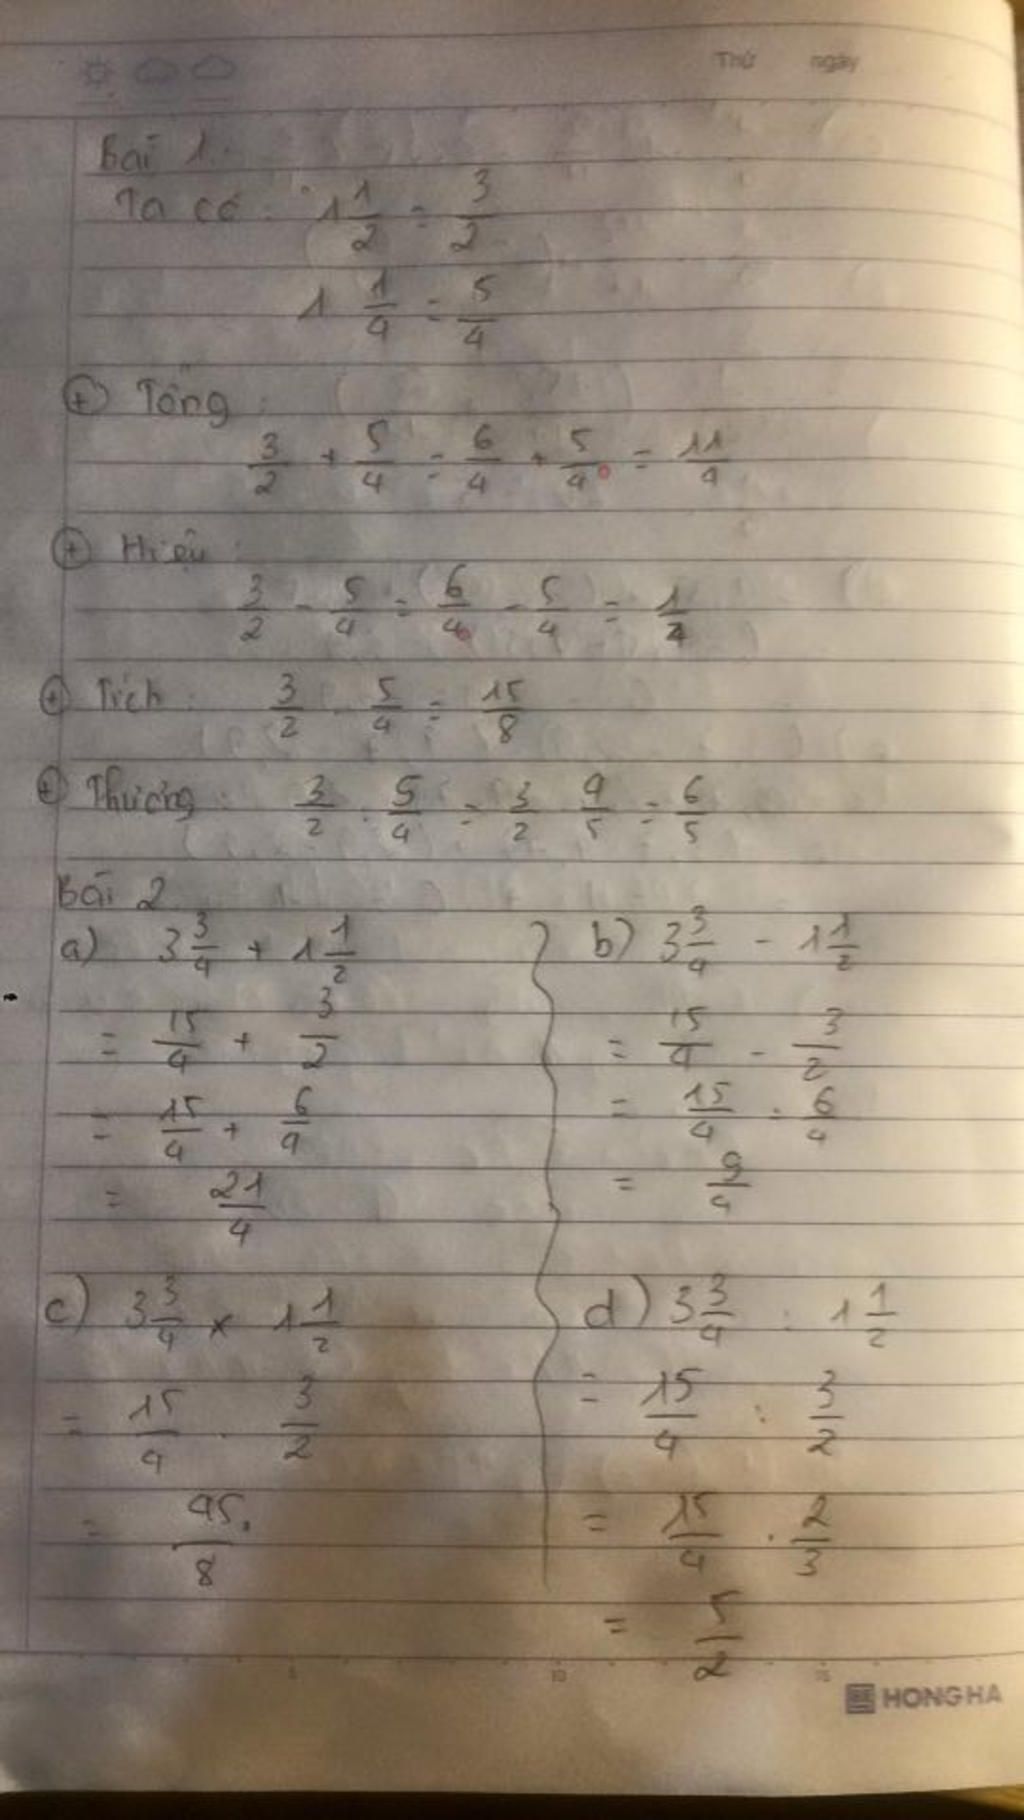 Thứ ngày
Bài 1.
Ta có : 1 1/2 = 3/2
1 1/4 = 5/4
(+) Tổng :
3/2 + 5/4 = 6/4 + 5/4 = 11/4
(+) Hiệu :
3/2 - 5/4 = 6/4 - 5/4 = 1/4
(+) Tích : 3/2 . 5/4 = 15/8
(+) Thương : 3/2 : 5/4 = 3/2 4/5 = 6/5
Bài 2
a) 3 3/4 + 1 1/2
= 15/4 + 3/2
= 15/4 + 6/4
= 21/4
b) 3 3/4 - 1 1/2
= 15/4 - 3/2
= 15/4 - 6/4
= 9/4
c) 3 3/4 x 1 1/2
= 15/4 . 3/2
= 45/8
d) 3 3/4 : 1 1/2
= 15/4 : 3/2
= 15/4 . 2/3
= 5/2
HONG HA